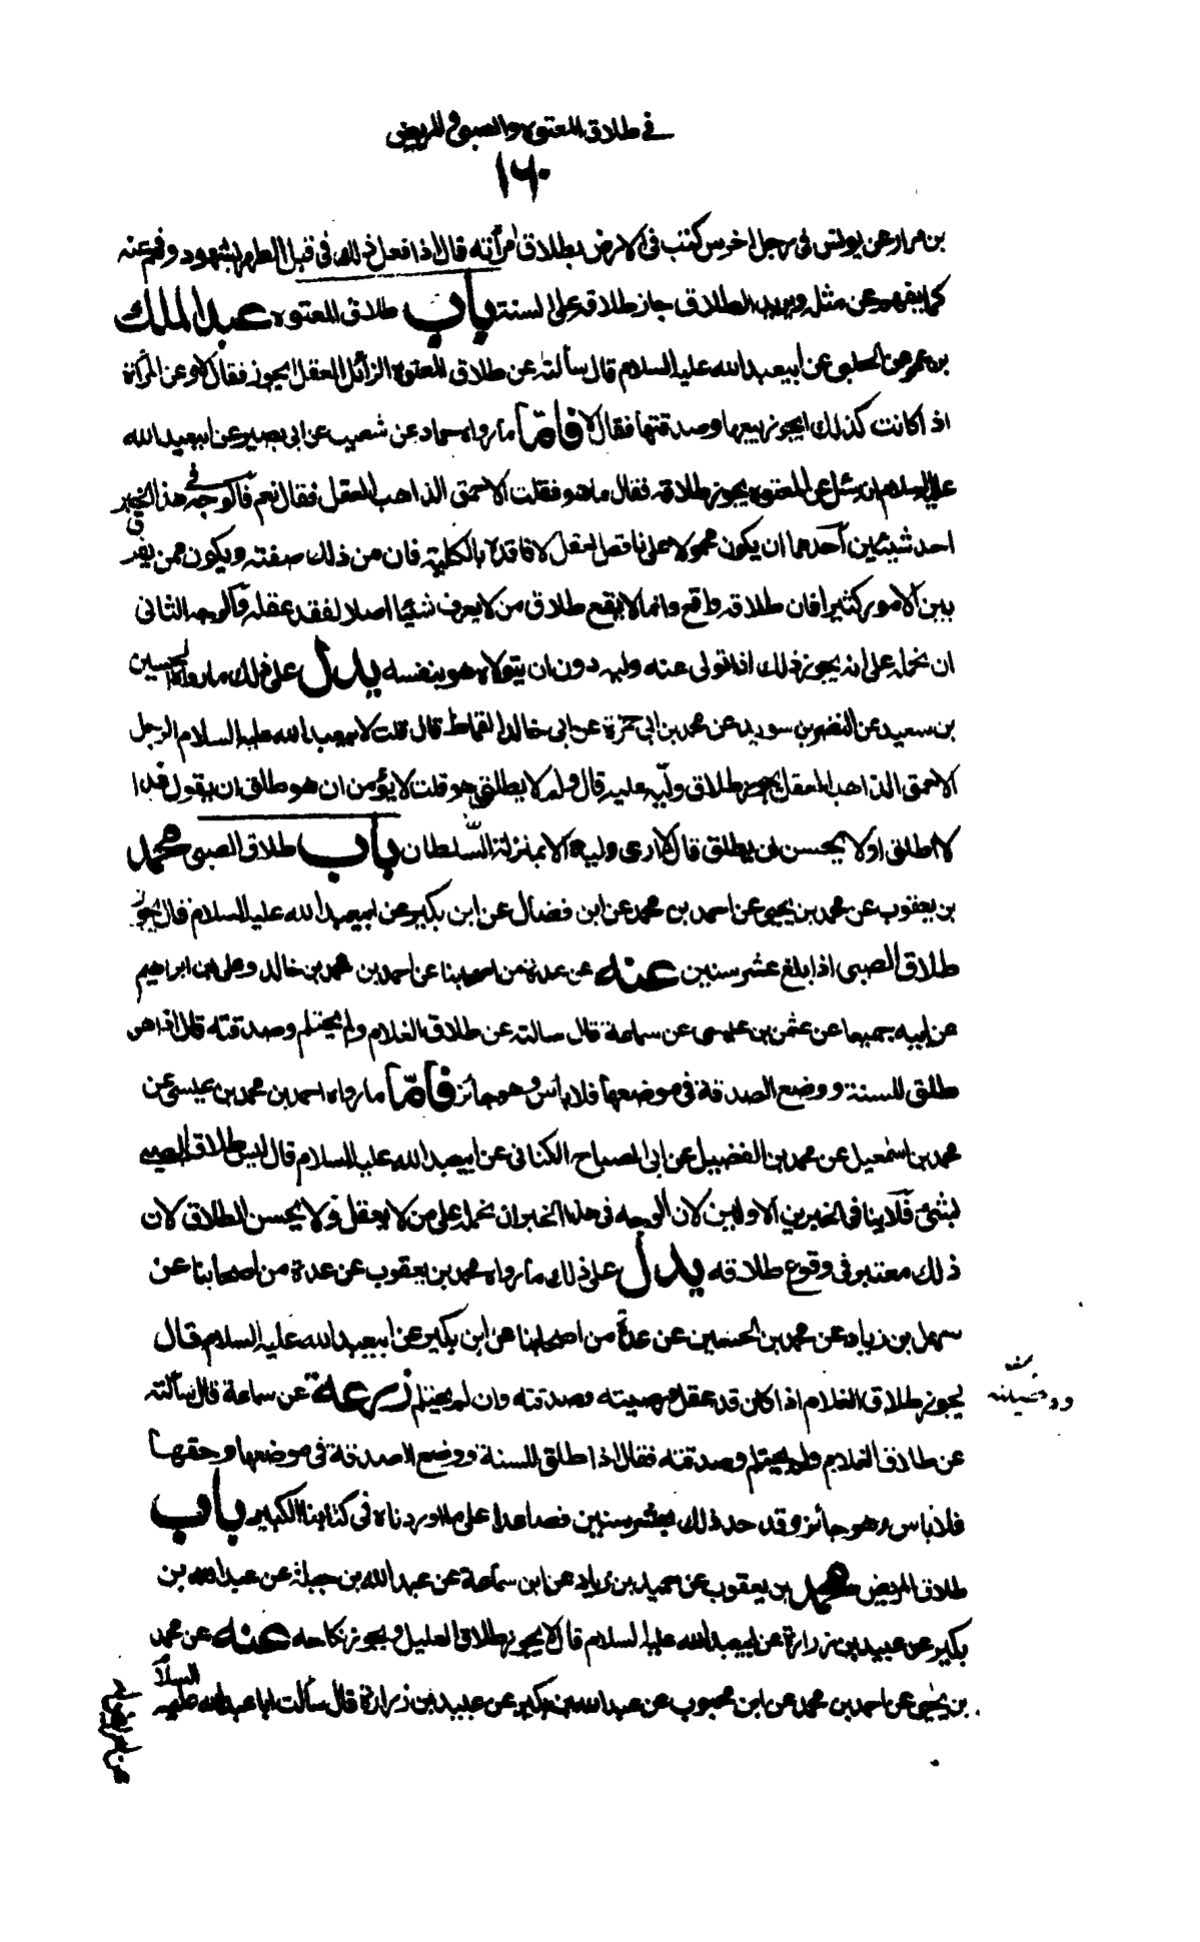 في طلاق المعتوه والصبي والمريض
١٦٠
بن مرار عن يونس في رجل اخرس كتب في الارض بطلاق امرأته قال اذا فعل ذلك في قبل الطهر بشهود وفهم عنه
كما يفهم عن مثله ويريد الطلاق جاز طلاقه على السنة باب طلاق المعتوه عبد الملك
بن عمر عن الحلبي عن ابيعبد الله عليه السلام قال سألته عن طلاق المعتوه الزائل العقل ايجوز فقال لا وعن المرأة
اذا كانت كذلك ايجوز بيعها وصدقتها فقال لا فامّا ما رواه حماد عن شعيب عن ابي بصير عن ابيعبد الله
عليه السلام انه سئل عن المعتوه يجوز طلاقه فقال ما هو فقلت الاحمق الذاهب العقل فقال نعم فالوجه في هذا الخبر
احد شيئين احدهما ان يكون محمولا على ناقص العقل لا فاقده بالكلية فان من ذلك صفته ويكون ممن يفرق
بين الامور كثيرا فان طلاقه واقع وانما لا يقع طلاق من لا يعرف شيئا اصلا لفقد عقله والوجه الثاني
ان نحمله على انه يجوز ذلك اذا تولى عنه وليه دون ان يتولاه هو بنفسه يدل على ذلك ما رواه الحسين
بن سعيد عن النضر بن سويد عن محمد بن ابي حمزة عن ابي خالد القماط قال قلت لابيعبد الله عليه السلام الرجل
الاحمق الذاهب العقل يجوز طلاق وليّه عليه قال ولم لا يطلق هو قلت لا يؤمن ان هو طلق ان يقول غدا
لا اطلق او لا يحسن ان يطلق قال لا ارى وليه الا بمنزلة السّلطان باب طلاق الصبي محمد
بن يعقوب عن محمد بن يحيى عن احمد بن محمد عن ابن فضال عن ابن بكير عن ابيعبد الله عليه السلام قال يجوز
طلاق الصبي اذا بلغ عشر سنين عنه عن عدة من اصحابنا عن احمد بن محمد بن خالد وعلي بن ابراهيم
عن ابيه جميعا عن عثمن بن عيسى عن سماعة قال سالته عن طلاق الغلام ولم يحتلم وصدقته قال اذا هو
طلق للسنة ووضع الصدقة في موضعها فلا بأس وهو جائز فامّا ما رواه احمد بن محمد بن عيسى عن
محمد بن اسمعيل عن محمد بن الفضيل عن ابي الصباح الكناني عن ابيعبد الله عليه السلام قال ليس طلاق الصبي
بشئ فلا ينافي الخبرين الاولين لان الوجه في هذا الخبر ان نحمله على من لا يعقل ولا يحسن الطلاق لان
ذلك معتبر في وقوع طلاقه يدل على ذلك ما رواه محمد بن يعقوب عن عدة من اصحابنا عن
سهل بن زياد عن محمد بن الحسين عن عدة من اصحابنا عن ابن بكير عن ابيعبد الله عليه السلام قال
يجوز طلاق الغلام اذا كان قد عقل ووصيته وصدقته وان لم يحتلم زرعة عن سماعة قال سألته
عن طلاق الغلام ولم يحتلم وصدقته فقال اذا طلق للسنة ووضع الصدقة في موضعها وحقها
فلا باس وهو جائز وقد حد ذلك بعشر سنين فصاعدا على ما اوردناه في كتابنا الكبير باب
طلاق المريض محمد بن يعقوب عن حميد بن زياد عن ابن سماعة عن عبد الله بن جبلة عن عبد الله بن
بكير عن عبيد بن زرارة عن ابيعبد الله عليه السلام قال لا يجوز طلاق العليل ويجوز نكاحه عنه عن محمد
بن يحيى عن احمد بن محمد عن ابن محبوب عن عبد الله بن بكير عن عبيد بن زرارة قال سألت ابا عبد الله عليه السلام